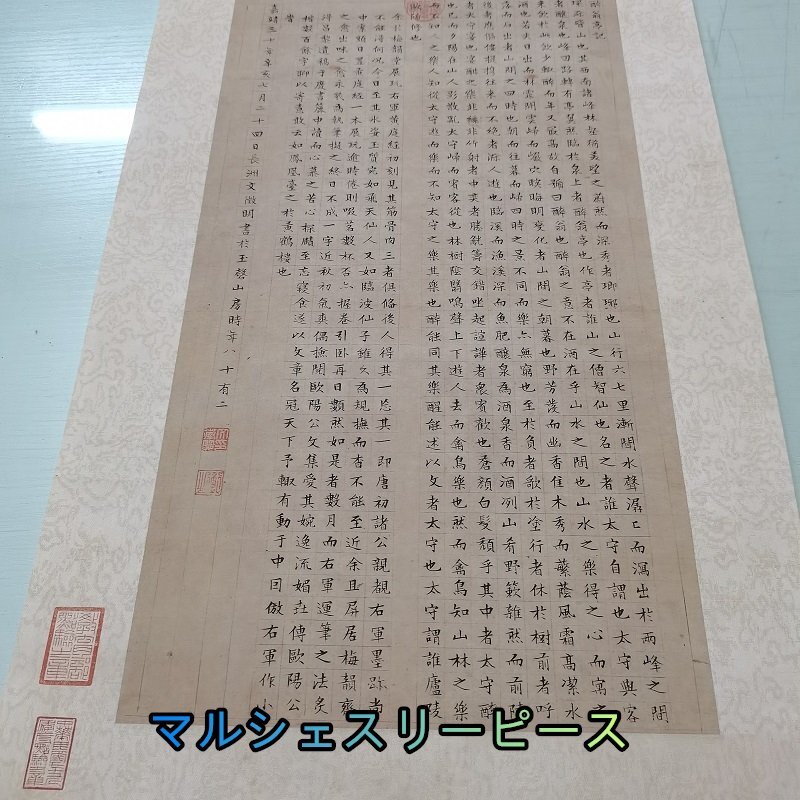 醉翁亭記
環滁皆山也其西南諸峰林壑尤美望之蔚然而深秀者瑯琊也山行六七里漸聞水聲潺〻而瀉出於兩峰之間
者釀泉也峰回路轉有亭翼然臨於泉上者醉翁亭也作亭者誰山之僧智仙也名之者誰太守自謂也太守與客
來飲於此飲少輒醉而年又最高故自號曰醉翁也醉翁之意不在酒在乎山水之間也山水之樂得之心而寓之
酒也若夫日出而林霏開雲歸而巖穴暝晦明變化者山間之朝暮也野芳發而幽香佳木秀而蘩蔭風霜高潔水
落而石出者山間之四時也朝而往暮而歸四時之景不同而樂亦無窮也至於負者歌於塗行者休於樹前者呼
後者應傴僂提攜往來而不絕者滁人遊也臨溪而漁溪深而魚肥釀泉為酒泉香而酒冽山肴野蔌雜然而前陳
者太守宴也宴酣之樂非絲非竹射者中奕者勝觥籌交錯坐起諠譁者衆賓歡也蒼顏白髮頹乎其中者太守醉
也已而夕陽在山人影散亂太守歸而賓客從也林樹陰翳鳴聲上下遊人去而禽鳥樂也然而禽鳥知山林之樂
而不知人之樂人知從太守遊而樂而不知太守之樂其樂也醉能同其樂醒能述以文者太守也太守謂誰廬陵
歐陽修也
余於梅韻堂展玩右軍黃庭經初刻見其筋骨肉三者俱備後人得其一忘其一即唐初諸公親覩右軍墨跡尚
不能得何況今日至其水姿玉質宛如飛天仙人又如臨波仙子雖久為規撫而杳不能至近余且屏居梅韻齋
中案頭日置黃庭經一本展玩逾時倦則啜茗數杯否亦握卷引臥再日數然如是者數月而右軍運筆之法炙
之愈出味之愈永裝為執筆擬之終日不成一字近秋初氣爽偶撿閱歐陽公文集愛其婉逸流媚並傳歐陽公
得昌黎遺稿于廢書簏中讀而心慕之苦心探賾至忘寢食遂以文章名冠天下予輒有動于中因倣右軍作小
楷數百餘字聊以寄意敢云如鳳凰臺之於黃鶴樓也
嘉靖三十年辛亥七月二十四日長洲文徵明書於玉磬山房時年八十有二
マルシェスリーピース